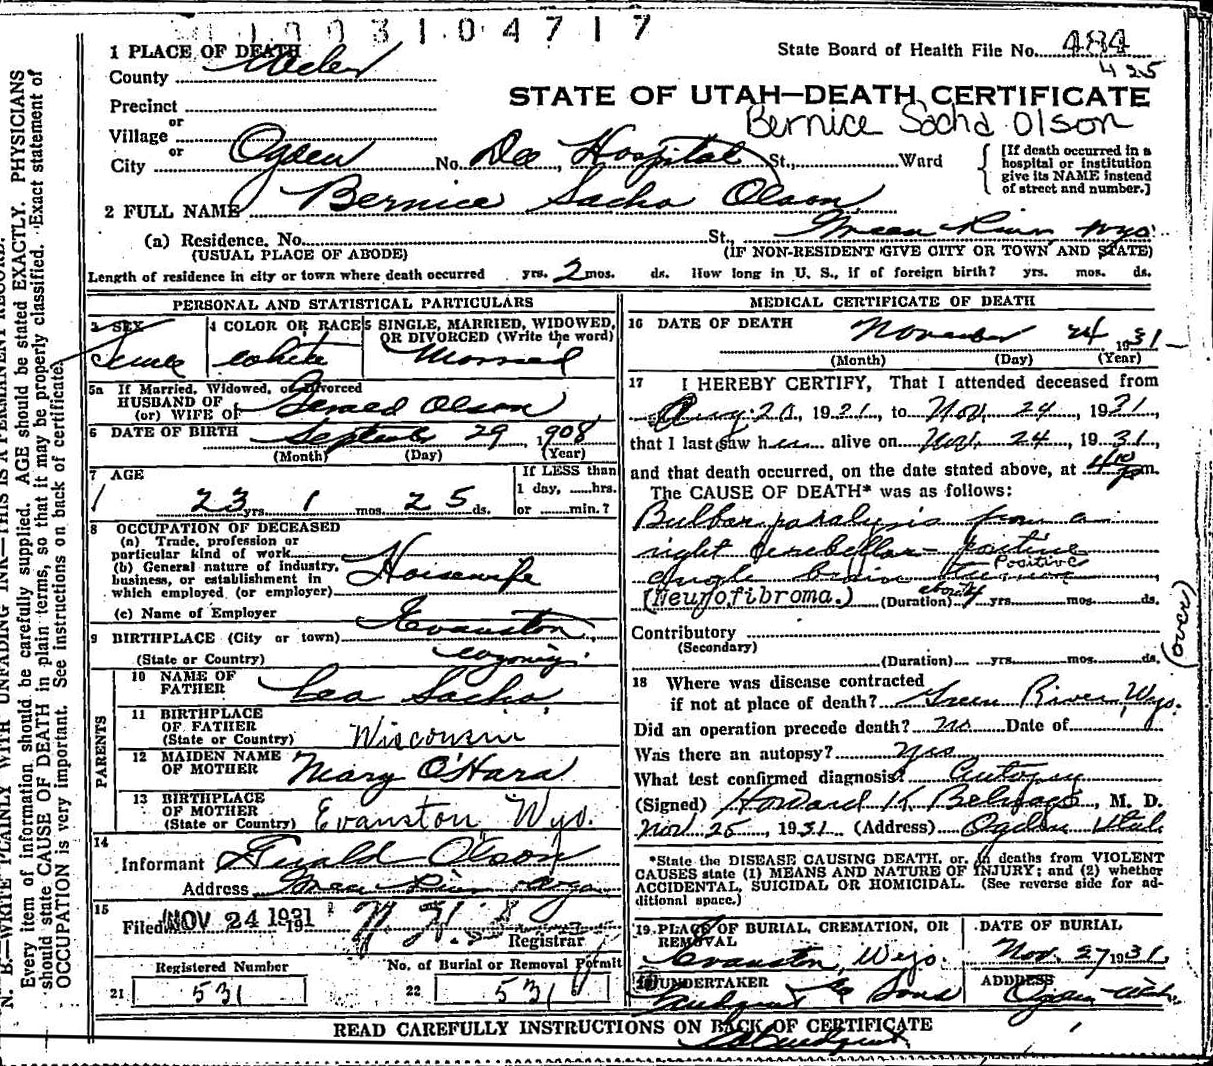 1003104717
1 PLACE OF DEATH
County Weber
State Board of Health File No. 484
425
Precinct
or
Village
or
City Ogden No. Dee Hospital St., Ward
STATE OF UTAH—DEATH CERTIFICATE
Bernice Sacha Olson
[If death occurred in a
hospital or institution
give its NAME instead
of street and number.]
2 FULL NAME Bernice Sacha Olson
(a) Residence. No. St., Green River Wyo.
(USUAL PLACE OF ABODE) (IF NON-RESIDENT GIVE CITY OR TOWN AND STATE)
Length of residence in city or town where death occurred yrs. 2 mos. ds. How long in U. S., if of foreign birth? yrs. mos. ds.
PERSONAL AND STATISTICAL PARTICULARS
3 SEX 4 COLOR OR RACE 5 SINGLE, MARRIED, WIDOWED,
OR DIVORCED (Write the word)
Female White Married
5a If Married, Widowed, or Divorced
HUSBAND OF
(or) WIFE OF Gerald Olson
6 DATE OF BIRTH September 29, 1908
(Month) (Day) (Year)
7 AGE If LESS than
1 day, hrs.
23 yrs. 1 mos. 25 ds. or min.?
8 OCCUPATION OF DECEASED
(a) Trade, profession or
particular kind of work
(b) General nature of industry,
business, or establishment in
which employed (or employer) Housewife
(c) Name of Employer
9 BIRTHPLACE (City or town) Evanston
(State or Country) Wyoming.
PARENTS
10 NAME OF
FATHER Leo Sacha
11 BIRTHPLACE
OF FATHER
(State or Country) Wisconsin
12 MAIDEN NAME
OF MOTHER Mary O'Hara
13 BIRTHPLACE
OF MOTHER
(State or Country) Evanston Wyo.
14
Informant Gerald Olson
Address Green River Wyo
15
Filed NOV 24 1931 191
Registrar
Registered Number No. of Burial or Removal Permit
21 531 22 531
MEDICAL CERTIFICATE OF DEATH
16 DATE OF DEATH November 24 1931
(Month) (Day) (Year)
17 I HEREBY CERTIFY, That I attended deceased from
Aug. 20, 1931, to Nov. 24, 1931,
that I last saw her alive on Nov. 24, 1931,
and that death occurred, on the date stated above, at m.
The CAUSE OF DEATH* was as follows:
Bulbar paralysis from a
right cerebellar-pontine
angle brain Positive
(Neurofibroma.) (Duration) yrs. mos. ds.
Contributory
(Secondary)
(Duration) yrs. mos. ds.
(over)
18 Where was disease contracted
if not at place of death? Green River, Wyo.
Did an operation precede death? no Date of
Was there an autopsy? Yes
What test confirmed diagnosis? Autopsy
(Signed) Howard K. Belnap, M. D.
Nov 25, 1931 (Address) Ogden Utah
*State the DISEASE CAUSING DEATH, or, in deaths from VIOLENT
CAUSES state (1) MEANS AND NATURE OF INJURY; and (2) whether
ACCIDENTAL, SUICIDAL OR HOMICIDAL. (See reverse side for ad-
ditional space.)
19 PLACE OF BURIAL, CREMATION, OR
REMOVAL DATE OF BURIAL
Evanston, Wyo. Nov. 27 1931
20 UNDERTAKER ADDRESS
Lindquist & Sons Ogden-Utah
READ CAREFULLY INSTRUCTIONS ON BACK OF CERTIFICATE
N. B.—WRITE PLAINLY WITH UNFADING INK—THIS IS A PERMANENT RECORD.
Every item of information should be carefully supplied. AGE should be stated EXACTLY. PHYSICIANS
should state CAUSE OF DEATH in plain terms, so that it may be properly classified. Exact statement of
OCCUPATION is very important. See instructions on back of certificate.